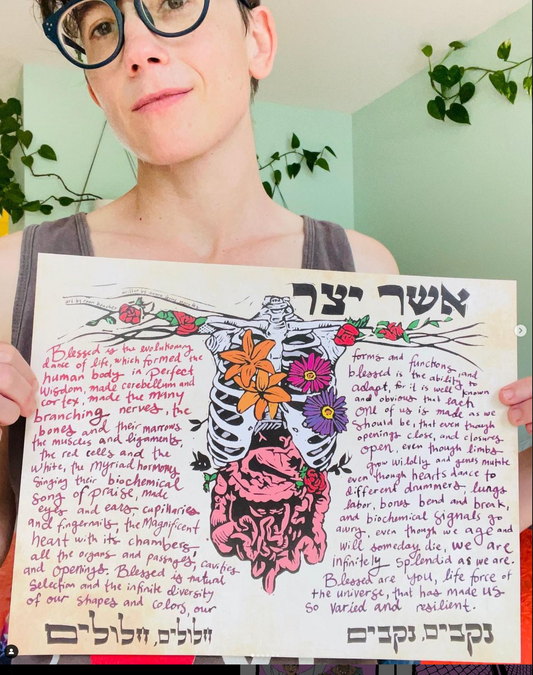 אשר יצר
Blessed is the evolutionary
dance of life, which formed the
human body in perfect
wisdom, made cerebellum and
cortex, made the many
branching nerves, the
bones and their marrows
the muscles and ligaments,
the red cells and the
white, the myriad hormones
singing their biochemical
song of praise, made
eyes and ears, capillaries
and fingernails, the magnificent
heart with its chambers
all the organs and passages, cavities
and openings. Blessed is natural
selection and the infinite diversity
of our shapes and colors, our
forms and functions, and
blessed is the ability to
adapt, for it is well known
and obvious that each
one of us is made as we
should be, that even though
openings close, and closures
open, even though limbs
grow wildly and genes mutate
even though hearts dance to
different drummers, lungs
labor, bones bend and break,
and biochemical signals go
awry, even though we age and
will someday die, we are
infinitely splendid as we are.
Blessed are you, life force of
the universe, that has made us
so varied and resilient.
נקבים, נקבים
חלולים, חלולים